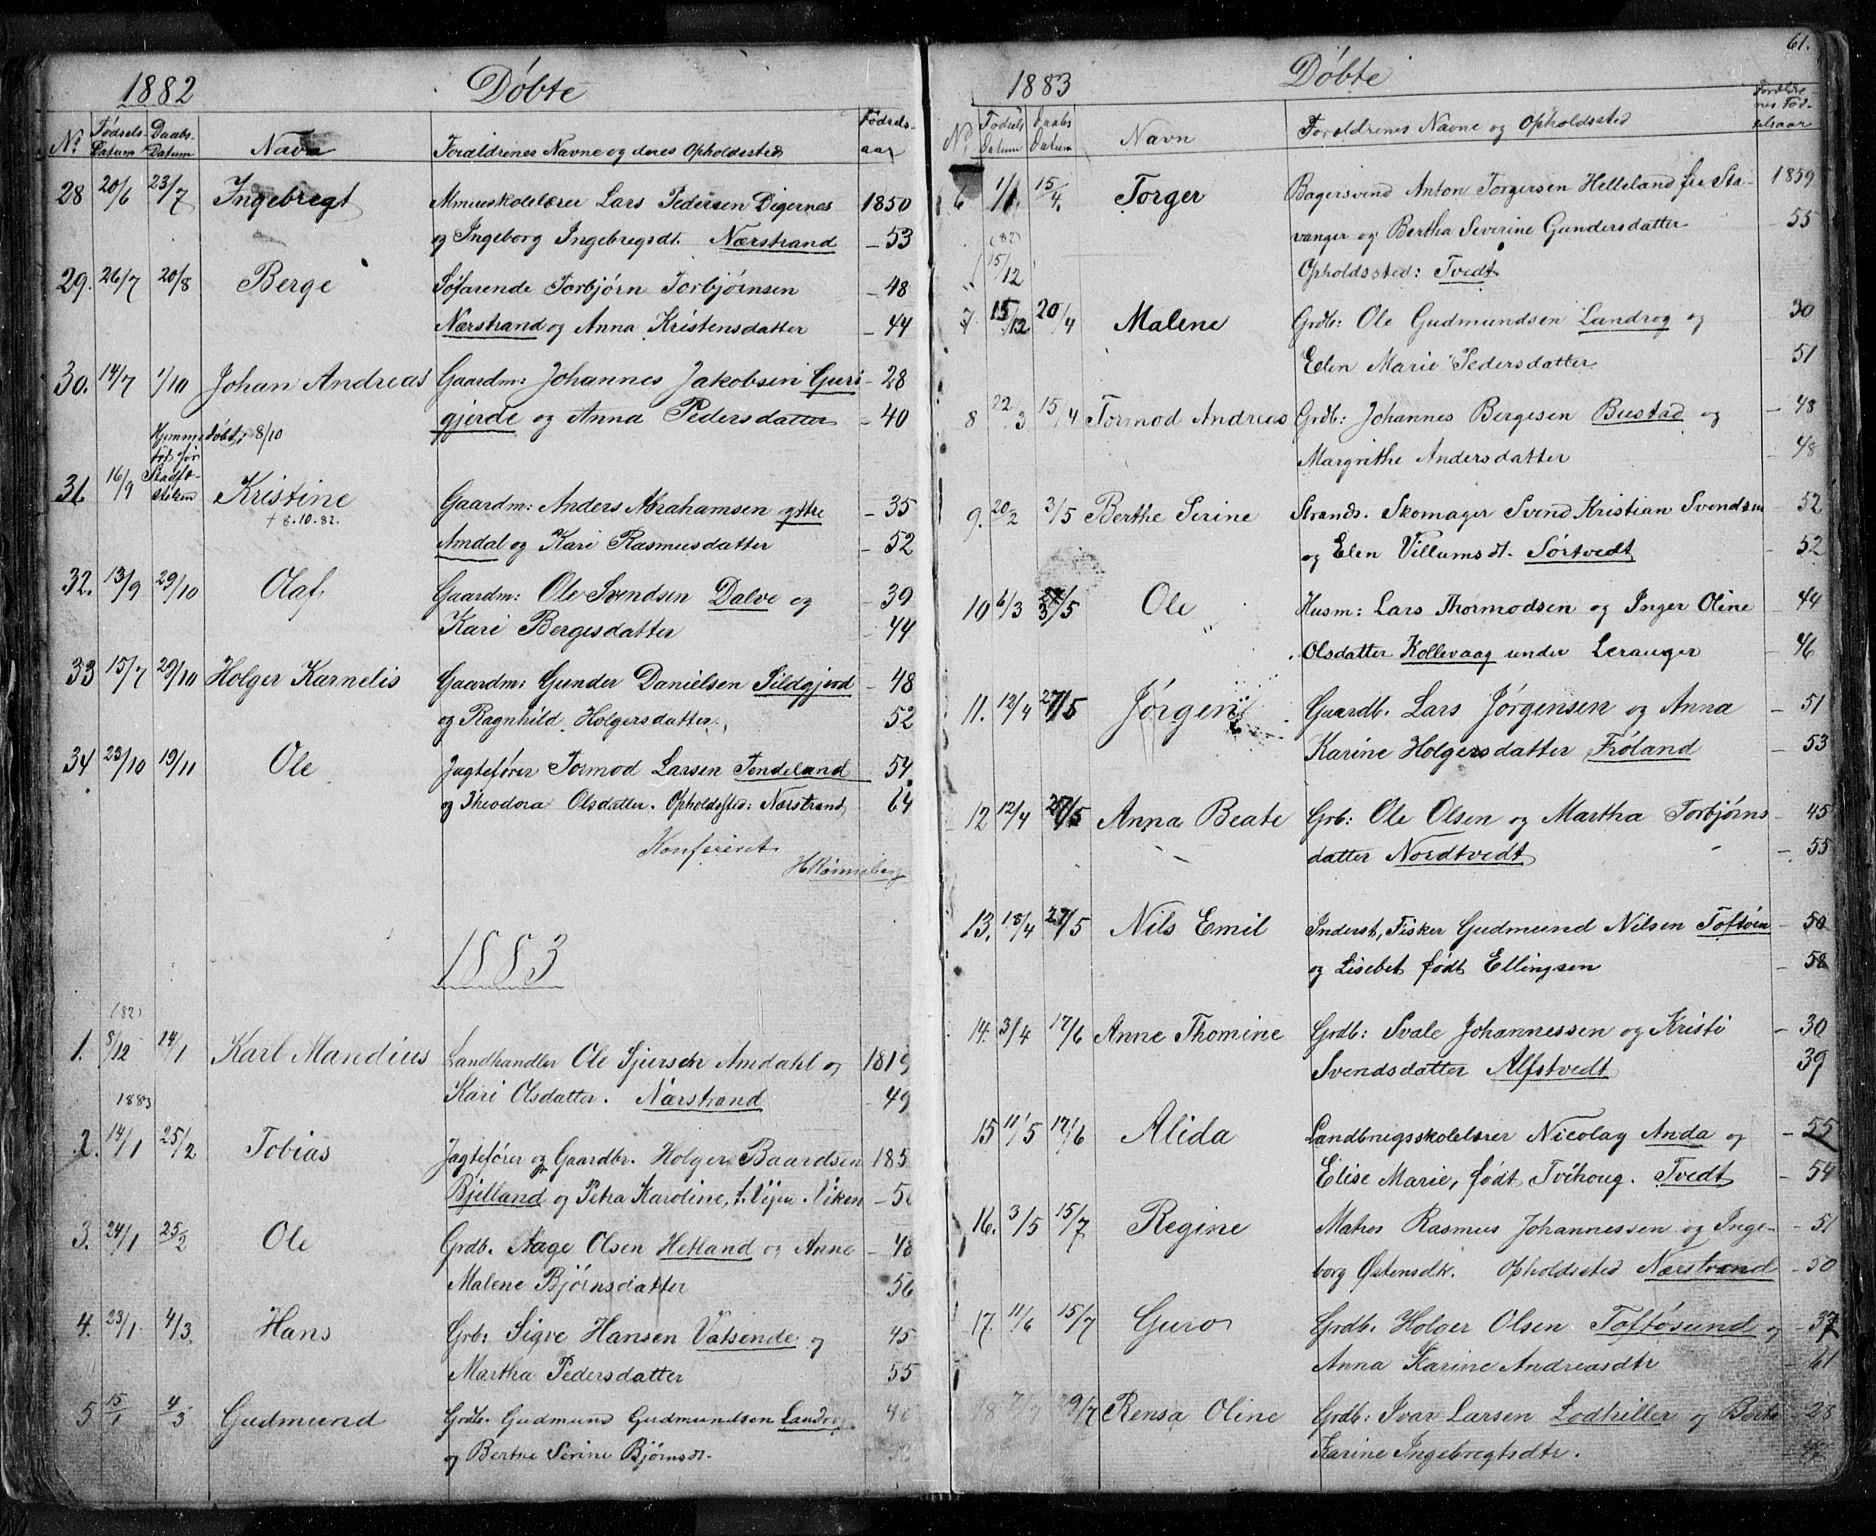 1882 Døbte
No Fødsels Datum Daabs Datum Navn Forældrenes Navne og deres Opholdssted Fødsels aar
28 20/6 23/7 Ingebregt Almueskolelærer Lars Pedersen Digernes 1850
og Ingeborg Ingebregsdt. Nærstrand – 53
29. 26/7 20/8 Berge Søfarende Torbjørn Torbjørnsen – 48
Nærstrand og Anna Kristensdatter – 44
30. 14/7 1/10 Johan Andreas Gaardm: Johannes Jakobsen Guri – 28
gjerde og Anna Pedersdatter – 40
Hjemmedøbt 8/10
død før Stadfæstelsen
31 16/9 Kristine Gaardm: Anders Abrahamsen ystre – 35
† 8.10.82. Amdal og Kari Rasmusdatter – 52
32. 13/9 29/10 Olaf Gaardm: Ole Svendsen Dalve og – 39
Kari Bergesdatter – 44
33 15/7 29/10 Holger Karnelis Gaardm: Gunder Danielsen Sildgjerd – 48
og Ragnhild Holgersdatter. 52
34 23/10 19/11 Ole Jagtefører Tormod Larsen Tendeland 54
og Theodora Olsdatter. Opholdssted: Nærstrand 64
Konfereret
HRønneberg
1883
(82)
1. 8/12 14/1 Karl Mandius Landhandler Ole Sjursen Amdahl og 1819
Kari Olsdatter. Nærstrand – 49
1883
2. 14/1 25/2 Tobias Jagtefører og Gaardbr. Holger Baardsen 185
Bjelland og Petra Karoline, f. Viken – 5
3. 24/1 25/2 Ole Grdb. Aage Olsen Hetland og Anne – 48
Malene Bjørnsdatter 56
4. 23/1. 4/3. Hans Grb: Sigve Hansen Vatsende og 45
Martha Pedersdatter 55
5 15/1 4/3 Gudmund Grdb. Gudmund Gudmundsen Landrog
og Berthe Serine Bjørnsdt.
61.
1883 Døbte
No Fødsels Datum Daabs Datum Navn Forældrenes Navne og Opholdssted Forældrenes Fødselsaar
6 1/1 15/4. Torger Bagersvend Anton Torgersen Helleland fra Sta- 1859
(82) vanger og Bertha Severine Gundersdatter – 55
15/12 Opholdssted: Tvedt
7 15/12 20/4 Malene Grdb: Ole Gudmundsen Landrog og 30
Elen Marie Pedersdatter – 51
8 22/3 15/4 Tormod Andreas Grdb: Johannes Bergesen Bustad og – 48
Margrithe Andersdatter – 48
9. 20/2 3/5 Berthe Serine Strands. Skomager Svend Kristian Svendsen – 52
og Elen Villumsdt. Sørtvedt – 52
10 6/3 3/5 Ole Husm: Lars Thormodsen og Inger Oline – 44
Olsdatter Kollevaag under Leranger – 46
11. 12/4 27/5 Jørgen Gaardb. Lars Jørgensen og Anna – 51
Karine Holgersdatter Frøland – 53
12 12/4 27/5 Anna Beate Grb: Ole Olsen og Martha Torbjørns – 45
datter Nordtvedt – 55
13. 18/4 27/5 Nils Emil Inderst, Fisker Gudmund Nilsen Toftøen – 50
og Lisebet født Ellingsen – 58
14. 3/4 17/6 Anne Thomine Grdb: Svale Johannessen og Kristi – 30
Svendsdatter Alfstvedt 39
15 11/5 17/6 Alida Landbrugsskolelærer Nicolay Anda og – 55
Elise Marie, født Tvihoug. Tvedt – 54
16. 3/5 15/7 Regine Matros Rasmus Johannessen og Inge- – 51
borg Østensdt. Opholdssted Nærstrand – 50
17. 11/6 15/7 Guro Grdb. Holger Olsen Toftøsund og – 37
Anna Karine Andreasdtr – 61
18 /7 29/7 Rensa Oline Grdb: Ivar Larsen Lodhiller og Berte – 28
Karine Ingebregtsdtr.